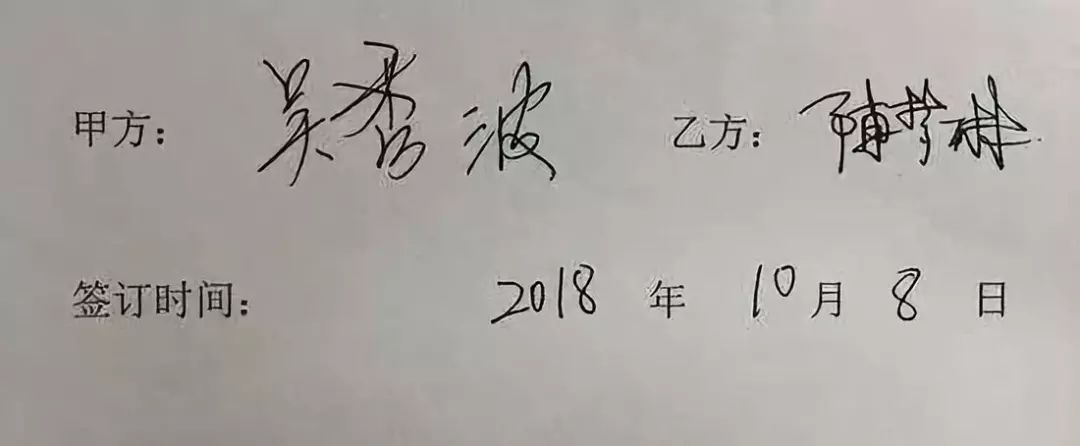 甲方： 吴秀波 乙方： 陈昱霖
签订时间： 2018 年 10 月 8 日